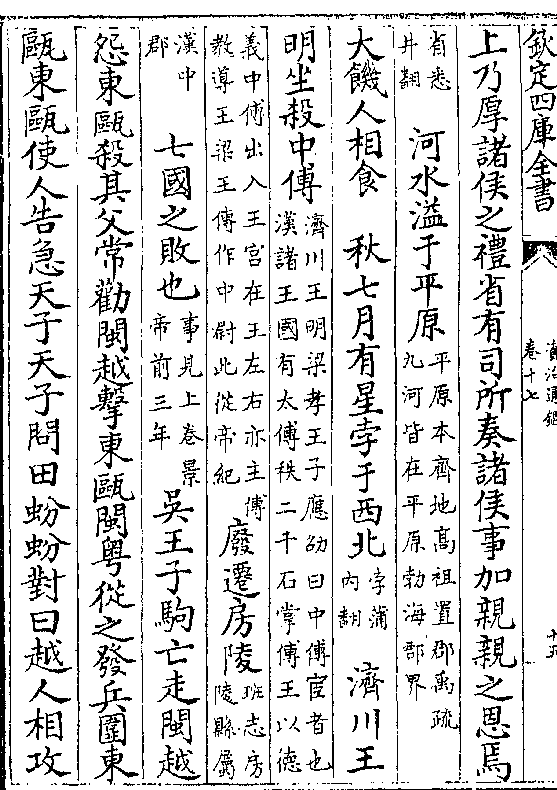 欽定四庫全書
資治通鑑
卷十七
十五
上乃厚諸侯之禮省有司所奏諸侯事加親親之恩焉
省悉井翻 河水溢于平原 平原本齊地髙祖置郡禹疏九河皆在平原勃海郡界
大饑人相食 秋七月有星孛于西北 孛蒲内翻 濟川王
明坐殺中傅 濟川王明梁孝王子應劭曰中傅宦者也漢諸王國有太傅秩二千石掌傅王以德
義中傅出入王宫在王左右亦主傅教導王梁王傳作中尉此從帝紀 廢遷房陵 班志房陵縣屬
漢中郡 七國之敗也 事見上卷景帝前三年 吳王子駒亡走閩越
怨東甌殺其父常勸閩越擊東甌閩粤從之發兵圍東
甌東甌使人告急天子天子問田蚡蚡對曰越人相攻